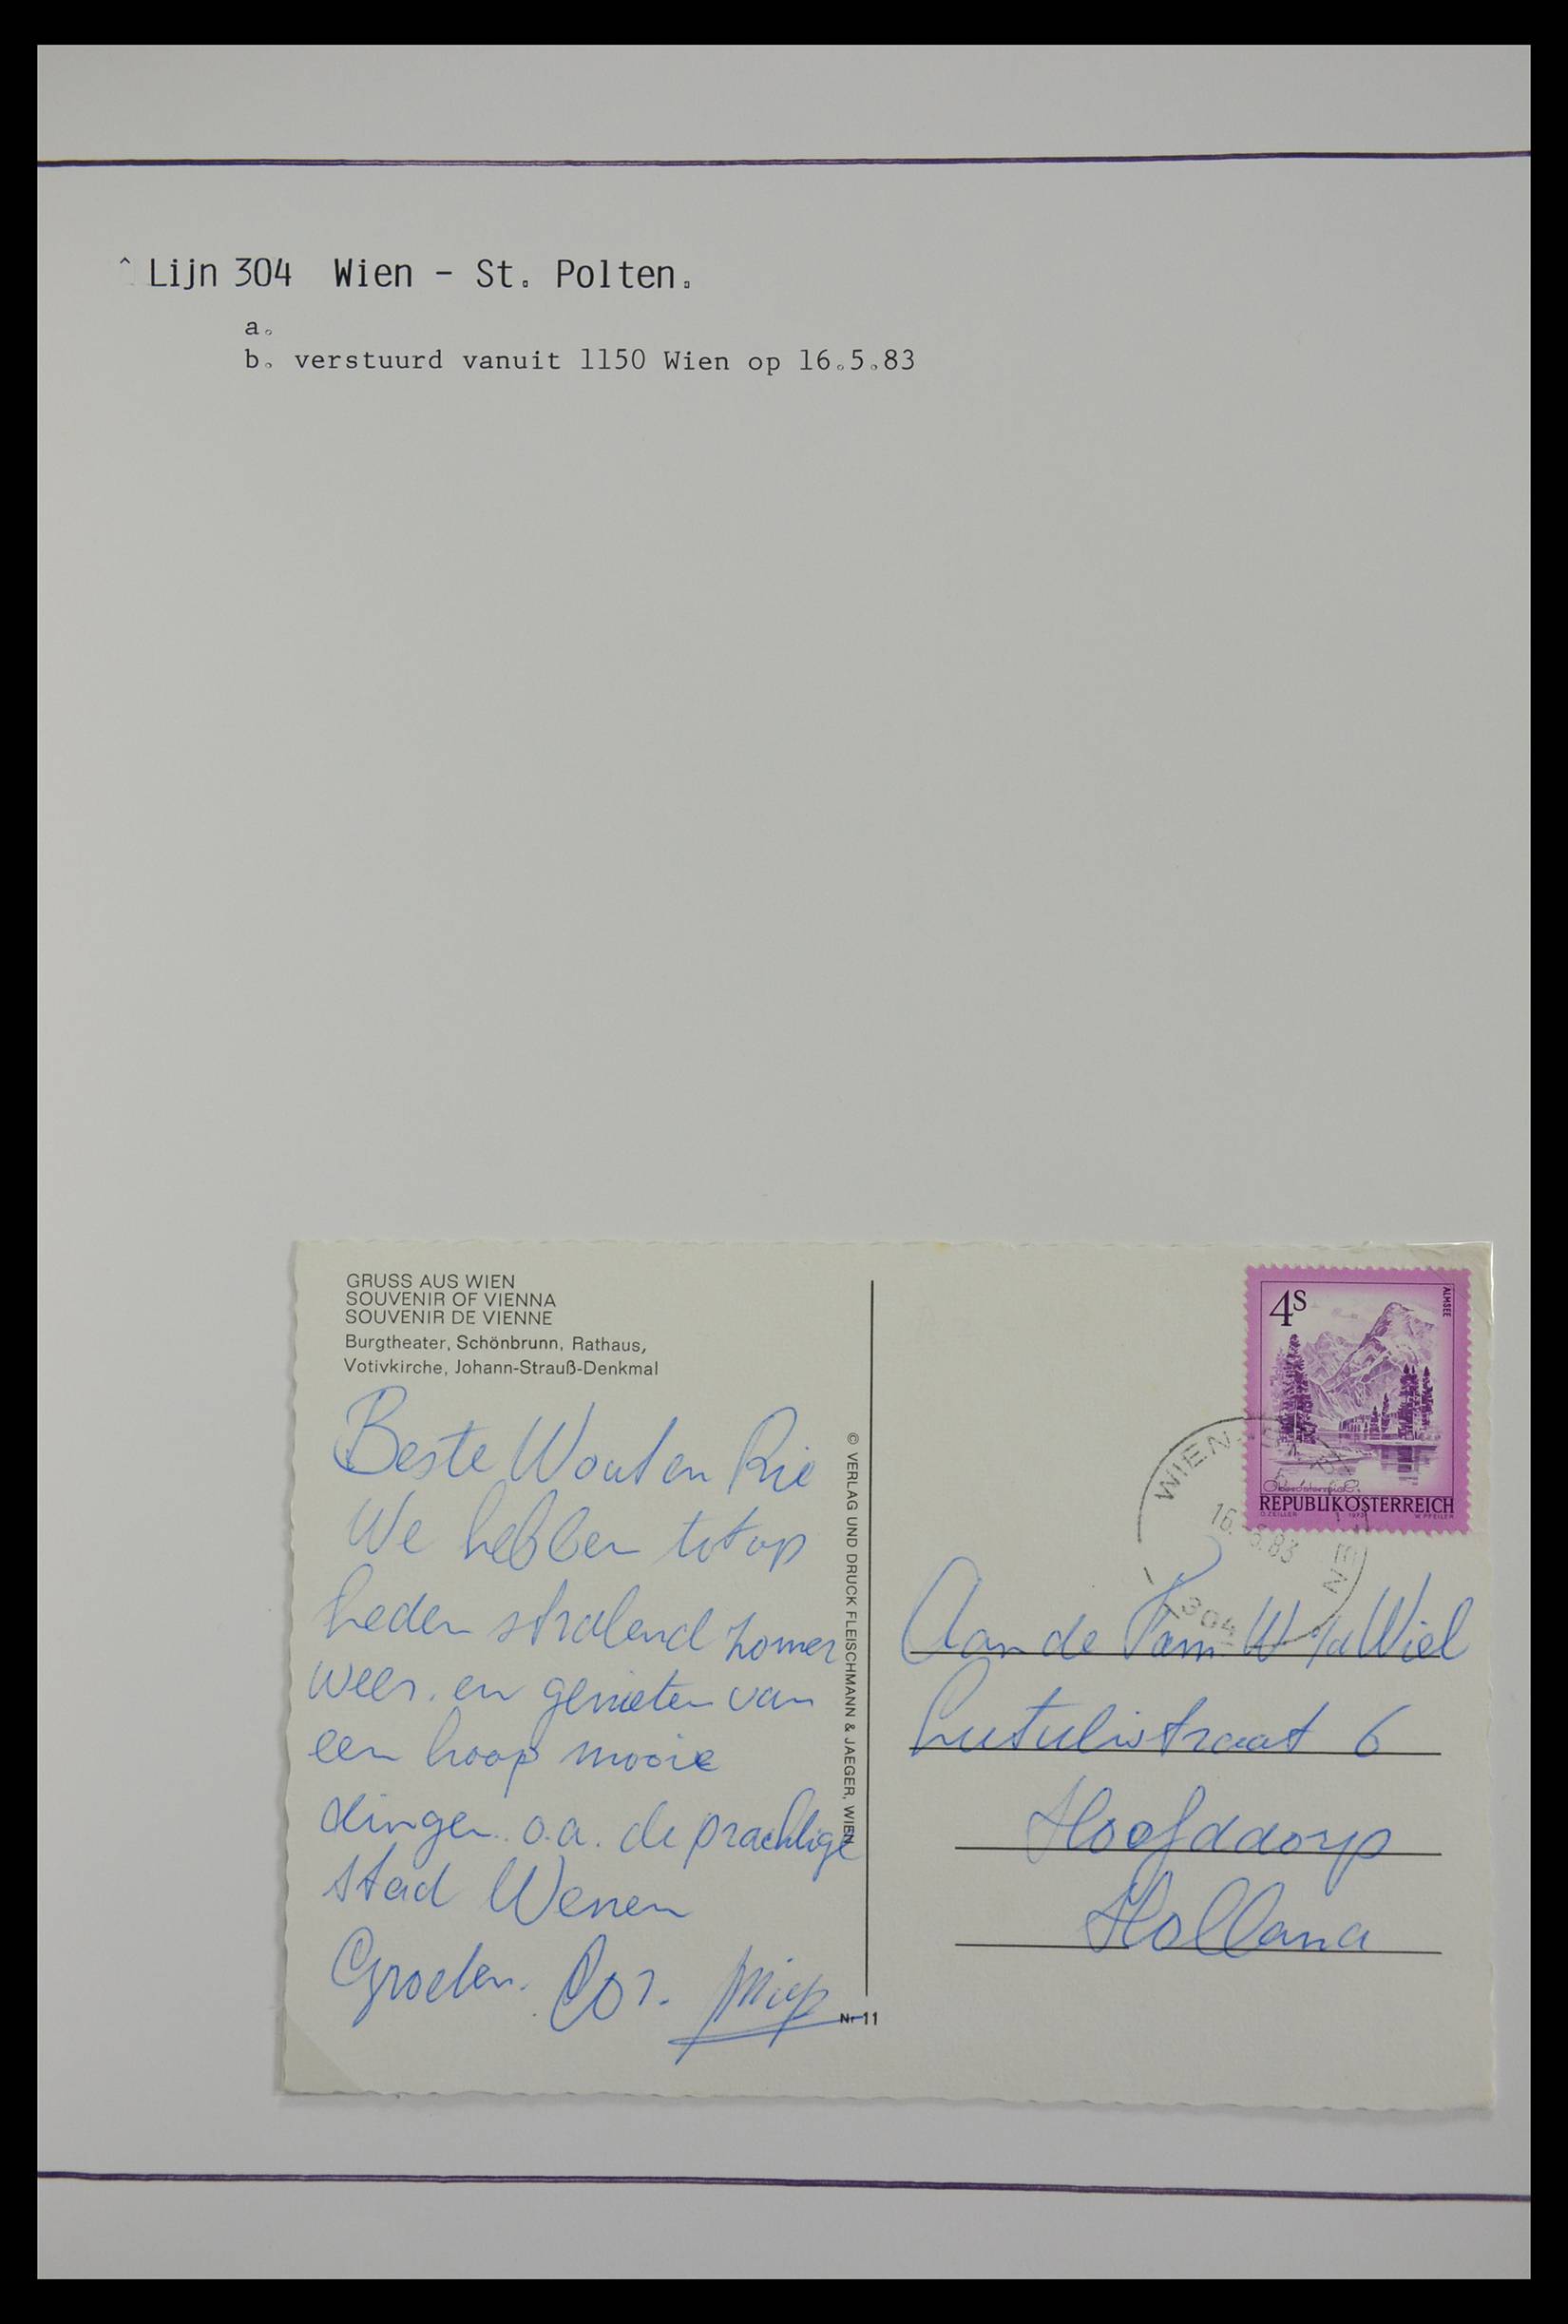 ^ Lijn 304 Wien - St. Polten.
a.
b. verstuurd vanuit 1150 Wien op 16.5.83
GRUSS AUS WIEN
SOUVENIR OF VIENNA
SOUVENIR DE VIENNE
Burgtheater, Schönbrunn, Rathaus,
Votivkirche, Johann-Strauß-Denkmal
Beste Wout en Rie
We hebben tot op
heden stralend zomer
weer. en genieten van
een hoop mooie
dingen. o.a. de prachtige
stad Wenen
Groeten. Cor. Miep
© VERLAG UND DRUCK FLEISCHMANN & JAEGER, WIEN
Nr 11
4S
ALMSEE
Oberösterreich
REPUBLIK ÖSTERREICH
O.ZEILLER 1973 W.PFEILER
WIEN - ST.
16. 5.83
304
Aan de Fam. W v/d Wiel
Lutulistraat 6
Hoofddorp
Holland